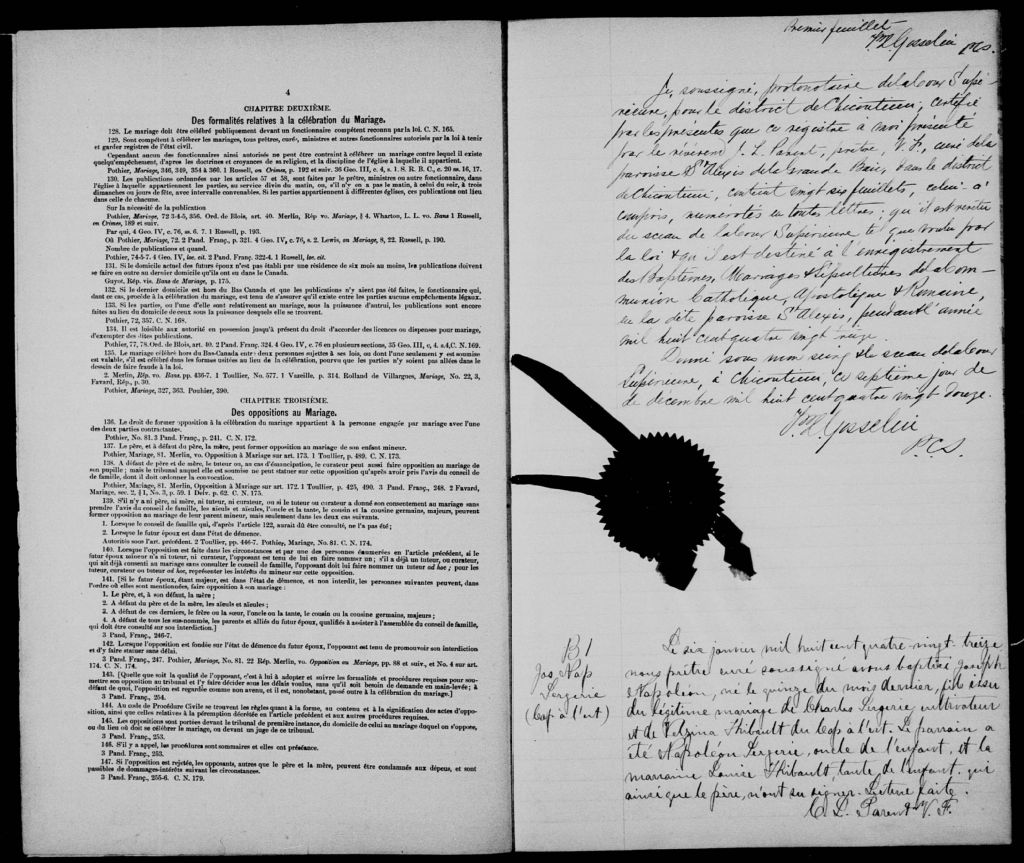 4
CHAPITRE DEUXIÈME.
Des formalités relatives à la célébration du Mariage.
128. Le mariage doit être célébré publiquement devant un fonctionnaire compétent reconnu par la loi. C. N. 165.
129. Sont compétents à célébrer les mariages, tous prêtres, curés, ministres et autres fonctionnaires autorisés par la loi à tenir
et garder registres de l'état civil.
Cependant aucun des fonctionnaires ainsi autorisés ne peut être contraint à célébrer un mariage contre lequel il existe
quelqu'empêchement, d'après les doctrines et croyances de sa religion, et la discipline de l'église à laquelle il appartient.
Pothier, Mariage, 346, 349, 354 à 360. 1 Russell, on Crimes, p. 192 et suiv. 36 Geo. III, c. 4, s. 1. S. R. B. C., c. 20 ss. 16, 17.
130. Les publications ordonnées par les articles 57 et 58, sont faites par le prêtre, ministre ou autre fonctionnaire, dans
l'église à laquelle appartiennent les parties, au service divin du matin, ou, s'il n'y en a pas le matin, à celui du soir, à trois
dimanches ou jours de fête, avec intervalle convenables. Si les parties appartiennent à différentes églises, ces publications ont lieu
dans celle de chacune.
Sur la nécessité de la publication
Pothier, Mariage, 72 3-4-5, 356. Ord. de Blois, art. 40. Merlin, Rép vo. Mariage, § 4. Wharton, L. L. vo. Bans 1 Russell,
on Crimes, 189 et suiv.
Par qui, 4 Geo. IV, c. 76, ss. 6. 7. 1 Russell, p. 193.
Où Pothier, Mariage, 72. 2 Pand. Franç., p. 321. 4 Geo. IV, c. 76, s. 2. Lewis, on Mariage, 8, 22. Russell, p. 190.
Nombre de publications et quand.
Pothier, 74-5-7. 4 Geo. IV, loc. cit. 2 Pand. Franç. 322-4. 1 Russell, loc. cit.
131. Si le domicile actuel des futurs époux n'est pas établi par une résidence de six mois au moins, les publications doivent
se faire en outre au dernier domicile qu'ils ont eu dans le Canada.
Guyot, Rép. vis. Bans de Mariage, p. 175.
132. Si le dernier domicile est hors du Bas Canada et que les publications n'y aient pas été faites, le fonctionnaire qui,
dant ce cas, procède à la célébration du mariage, est tenu de s'assurer qu'il existe entre les parties aucuns empêchements légaux.
133. Si les parties, ou l'une d'elle sont relativement au mariage, sous la puissance d'autrui, les publications sont encore
faites au lieu du domicile de ceux sous la puissance desquels elle se trouvent.
Pothier, 72, 357. C. N. 168.
134. Il est loisible aux autorité en possession jusqu'à présent du droit d'accorder des licences ou dispenses pour mariage,
d'exempter des dites publications.
Pothier, 77, 78. Ord. de Blois, art. 40. 2 Pand Franç. 324. 4 Geo. IV, c. 76 en plusieurs sections, 35 Geo. III, c, 4. s.4,C. N.169.
135. Le mariage célébré hors du Bas-Canada entre deux personnes sujettes à ses lois, ou dont l'une seulement y est soumise
est valable, s'il est célébré dans les formes usitées au lieu de la célébration, pourvu que les parties n'y soient pas allées dans le
dessein de faire fraude à la loi.
2. Merlin, Rép. vo. Bans. pp. 436-7. 1 Toullier, No. 577. 1 Vazeille. p. 314. Rolland de Villargues, Mariage, No. 22, 3,
Favard, Rép., p. 30.
Pothier, Mariage, 327, 363. Pouhier, 390.
CHAPITRE TROISIÈME.
Des oppositions au Mariage.
136. Le droit de former opposition à la célébration du mariage appartient à la personne engagée par mariage avec l'une
des deux parties contractantes.
Pothier, No. 81. 3 Pand. Franç., p. 241. C. N. 172.
137. Le père, et à défaut du père, la mère, peut former opposition au mariage de son enfant mineur.
Pothier, Mariage, 81. Merlin, vo. Opposition à Mariage sur art. 173. 1 Toullier, p. 489. C. N. 173.
138. A défaut de père et de mère, le tuteur ou, as cas d'émancipation, le curateur peut aussi faire opposition au mariage de
son pupille ; mais le tribunal auquel elle est soumise ne peut statuer sur cette opposition qu'après avoir pris l'avis du conseil de
de famille, dont il doit ordonner la convocation.
Pothier, Mariage, 81. Merlin, Opposition à Mariage sur art. 172. 1 Toullier, p. 425, 490. 3 Pand. Franç., 248. 2 Favard,
Mariage, sec. 2, § 1, No. 3, p. 59. 1 Delv. p. 62. C. N. 175.
139. S'il n'y a ni père, ni mère, ni tuteur, ni curateur, ou si le tuteur ou curateur a donné son consentement au mariage sans
prendre l'avis du conseil de famille, les aïeuls et aïeules, l'oncle et la tante, le cousin et la cousine germains, majeurs, peuvent
former opposition au mariage de leur parent mineur, mais seulement dans les deux cas suivants.
1. Lorsque le conseil de famille qui, d'après l'article 122, aurait dû être consulté, ne l'a pas été ;
2. Lorsque le futur époux est dans l'état de démence.
Autorités sous l'art. précédent. 2 Toullier, pp. 446-7. Pothier, Mariage, No. 81. C. N. 174.
140. Lorsque l'opposition est faite dans les circonstances et par une des personnes énumerées en l'article précédent, si le
futur époux mineur n'a ni tuteur, ni curateur, l'opposant est tenu de lui en faire nommer un ; s'il a déjà un tuteur, ou curateur,
qui ait déjà consenti au mariage sans consulter le conseil de famille, l'opposant doit lui faire nommer un tuteur ad hoc ; pour les
tuteur, curateur ou tuteur ad hoc, représenter les intérêts du mineur sur cette opposition.
141. [Si le futur époux, étant majeur, est dans l'état de démence, et non interdit, les personnes suivantes peuvent, dans
l'ordre où elles sont mentionnées, faire opposition à son mariage :
1. Le père, et, à son défaut, la mère ;
2. A défaut du père et de la mère, les aïeuls et aïeules ;
3. A défaut de ces derniers, le frère ou la sœur, l'oncle ou la tante, le cousin ou la cousine germains, majeurs ;
4. A défaut de tous les sus-nommés, les parents et alliés du futur époux, qualifiés à assister à l'assemblée du conseil de famille,
qui doit être consulté sur son interdiction.]
3 Pand, Franç., 246-7.
142. Lorsque l'opposition est fondée sur l'état de démence du futur époux, l'opposant est tenu de promouvoir son interdiction
et d'y faire statuer sans délai.
3 Pand. Franç., 247. Pothier, Mariage, No. 81. 22 Rép. Merlin, vo. Opposition au Mariage, pp. 88 et suiv., et No. 4 sur art.
174. C. N. 174.
143. [Quelle que soit la qualité de l'opposant, c'est à lui à adopter et suivre les formalités et procédures requises pour sou-
mettre son opposition au tribunal et l'y faire décider sous les délais voulus, sans qu'il soit besoin de demande en main-levée ; à
défaut de quoi, l'opposition est regardée comme non avenu, et il est, nonobstant, passé outre à la célébration du mariage.]
3 Pand. Franç., 254.
144. Au code de Procédure Civile se trouvent les règles quant à la forme, au contenu et à la signification des actes d'oppo-
sition, ainsi que celles relatives à la péremption décrétée en l'article précédent et aux autres procédures requises.
145. Les oppositions sont portées devant le tribunal de première instance, du domicile de celui au mariage duquel on s'oppose,
ou du lieu où doit se célébrer le mariage, ou devant un juge de ce tribunal.
3 Pand. Franç., 253.
146. S'il y a appel, les procédures sont sommaires et elles ont préséance.
3 Pand. Franç., 253.
147. Si l'opposition est rejetée, les opposants, autres que le père et la mère, peuvent être condamnés aux dépens, et sont
passibles de dommages-intérêts suivant les circonstances.
3 Pand. Franç., 255-6. C. N. 179.
Premier feuillet
F.X. Gosselin P.C.S.
Je, soussigné, protonotaire de la Cour Supé-
rieure, pour le district de Chicoutimi, certifie
par les présentes que ce registre à moi présenté
par le révérend L. Parent, prêtre, V. F., curé de la
paroisse St Alexis de la Grande Baie, dans le district
de Chicoutimi, contient vingt six feuillets, celui-ci
compris, numérotés en toutes lettres; qu'il est revêtu
du sceau de la Cour Supérieure tel que voulu par
la loi & qu'il est destiné à l'enregistrement
des Baptêmes, Mariages & Sépultures de la Com-
munion Catholique, Apostolique & Romaine,
en la dite paroisse St Alexis, pendant l'année
mil huit cent quatre vingt treize.
Donné sous mon seing & le sceau de la Cour
Supérieure, à Chicoutimi, ce septième jour de
de décembre mil huit cent quatre vingt douze.
F.X. Gosselin
P.C.S.
B 1
Jos. Nap
Lurgerie
(Cap à l'est)
Le six janvier mil huit cent quatre-vingt-treize
nous prêtre curé soussigné avons baptisé Joseph
Napoléon, né le quinze du mois dernier, fils issu
du légitime mariage de Charles cultivateur
et de Thibault du Cap à l'est. Le parrain a
été Napoléon oncle de l'enfant, et la
marraine Louise Thibault, tante de l'enfant qui
ainsi que le père, n'ont su signer. Lecture faite.
L. Parent V. F.